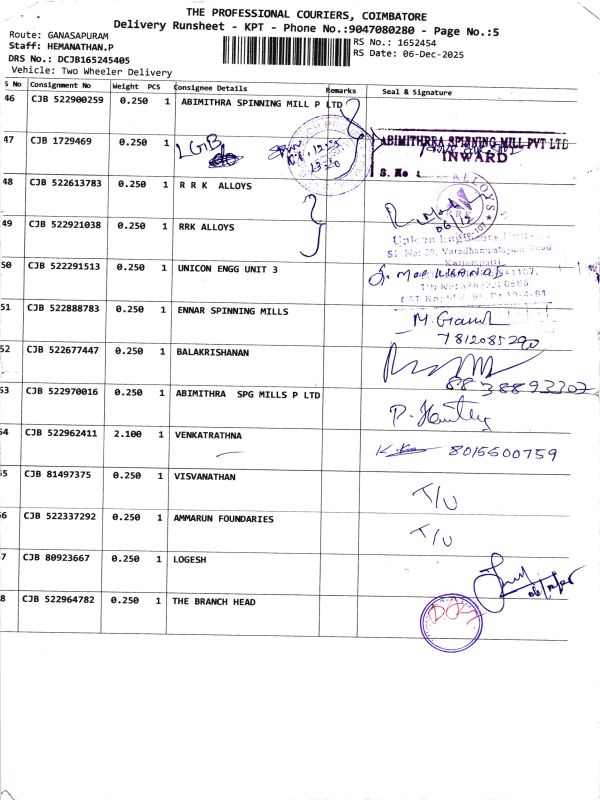 THE PROFESSIONAL COURIERS, COIMBATORE
Delivery Runsheet - KPT - Phone No.:9047080280 - Page No.:5
Route: GANASAPURAM
Staff: HEMANATHAN.P
RS No.: 1652454
DRS No.: DCJB165245405
RS Date: 06-Dec-2025
Vehicle: Two Wheeler Delivery
S No Consignment No Weight PCS Consignee Details Remarks Seal & Signature
46 CJB 522900259 0.250 1 ABIMITHRA SPINNING MILL P LTD
47 CJB 1729469 0.250 1 LGB
ABIMITHRRA SPINNING MILL PVT LTD
INWARD
S. No :
48 CJB 522613783 0.250 1 R R K ALLOYS
ALLOYS
RRK
06/12
49 CJB 522921038 0.250 1 RRK ALLOYS
50 CJB 522291513 0.250 1 UNICON ENGG UNIT 3
51 CJB 522888783 0.250 1 ENNAR SPINNING MILLS
7812085290
52 CJB 522677447 0.250 1 BALAKRISHANAN
8838893302
53 CJB 522970016 0.250 1 ABIMITHRA SPG MILLS P LTD
54 CJB 522962411 2.100 1 VENKATRATHNA 8015600759
55 CJB 81497375 0.250 1 VISVANATHAN T/U
56 CJB 522337292 0.250 1 AMMARUN FOUNDARIES T/U
57 CJB 80923667 0.250 1 LOGESH
58 CJB 522964782 0.250 1 THE BRANCH HEAD